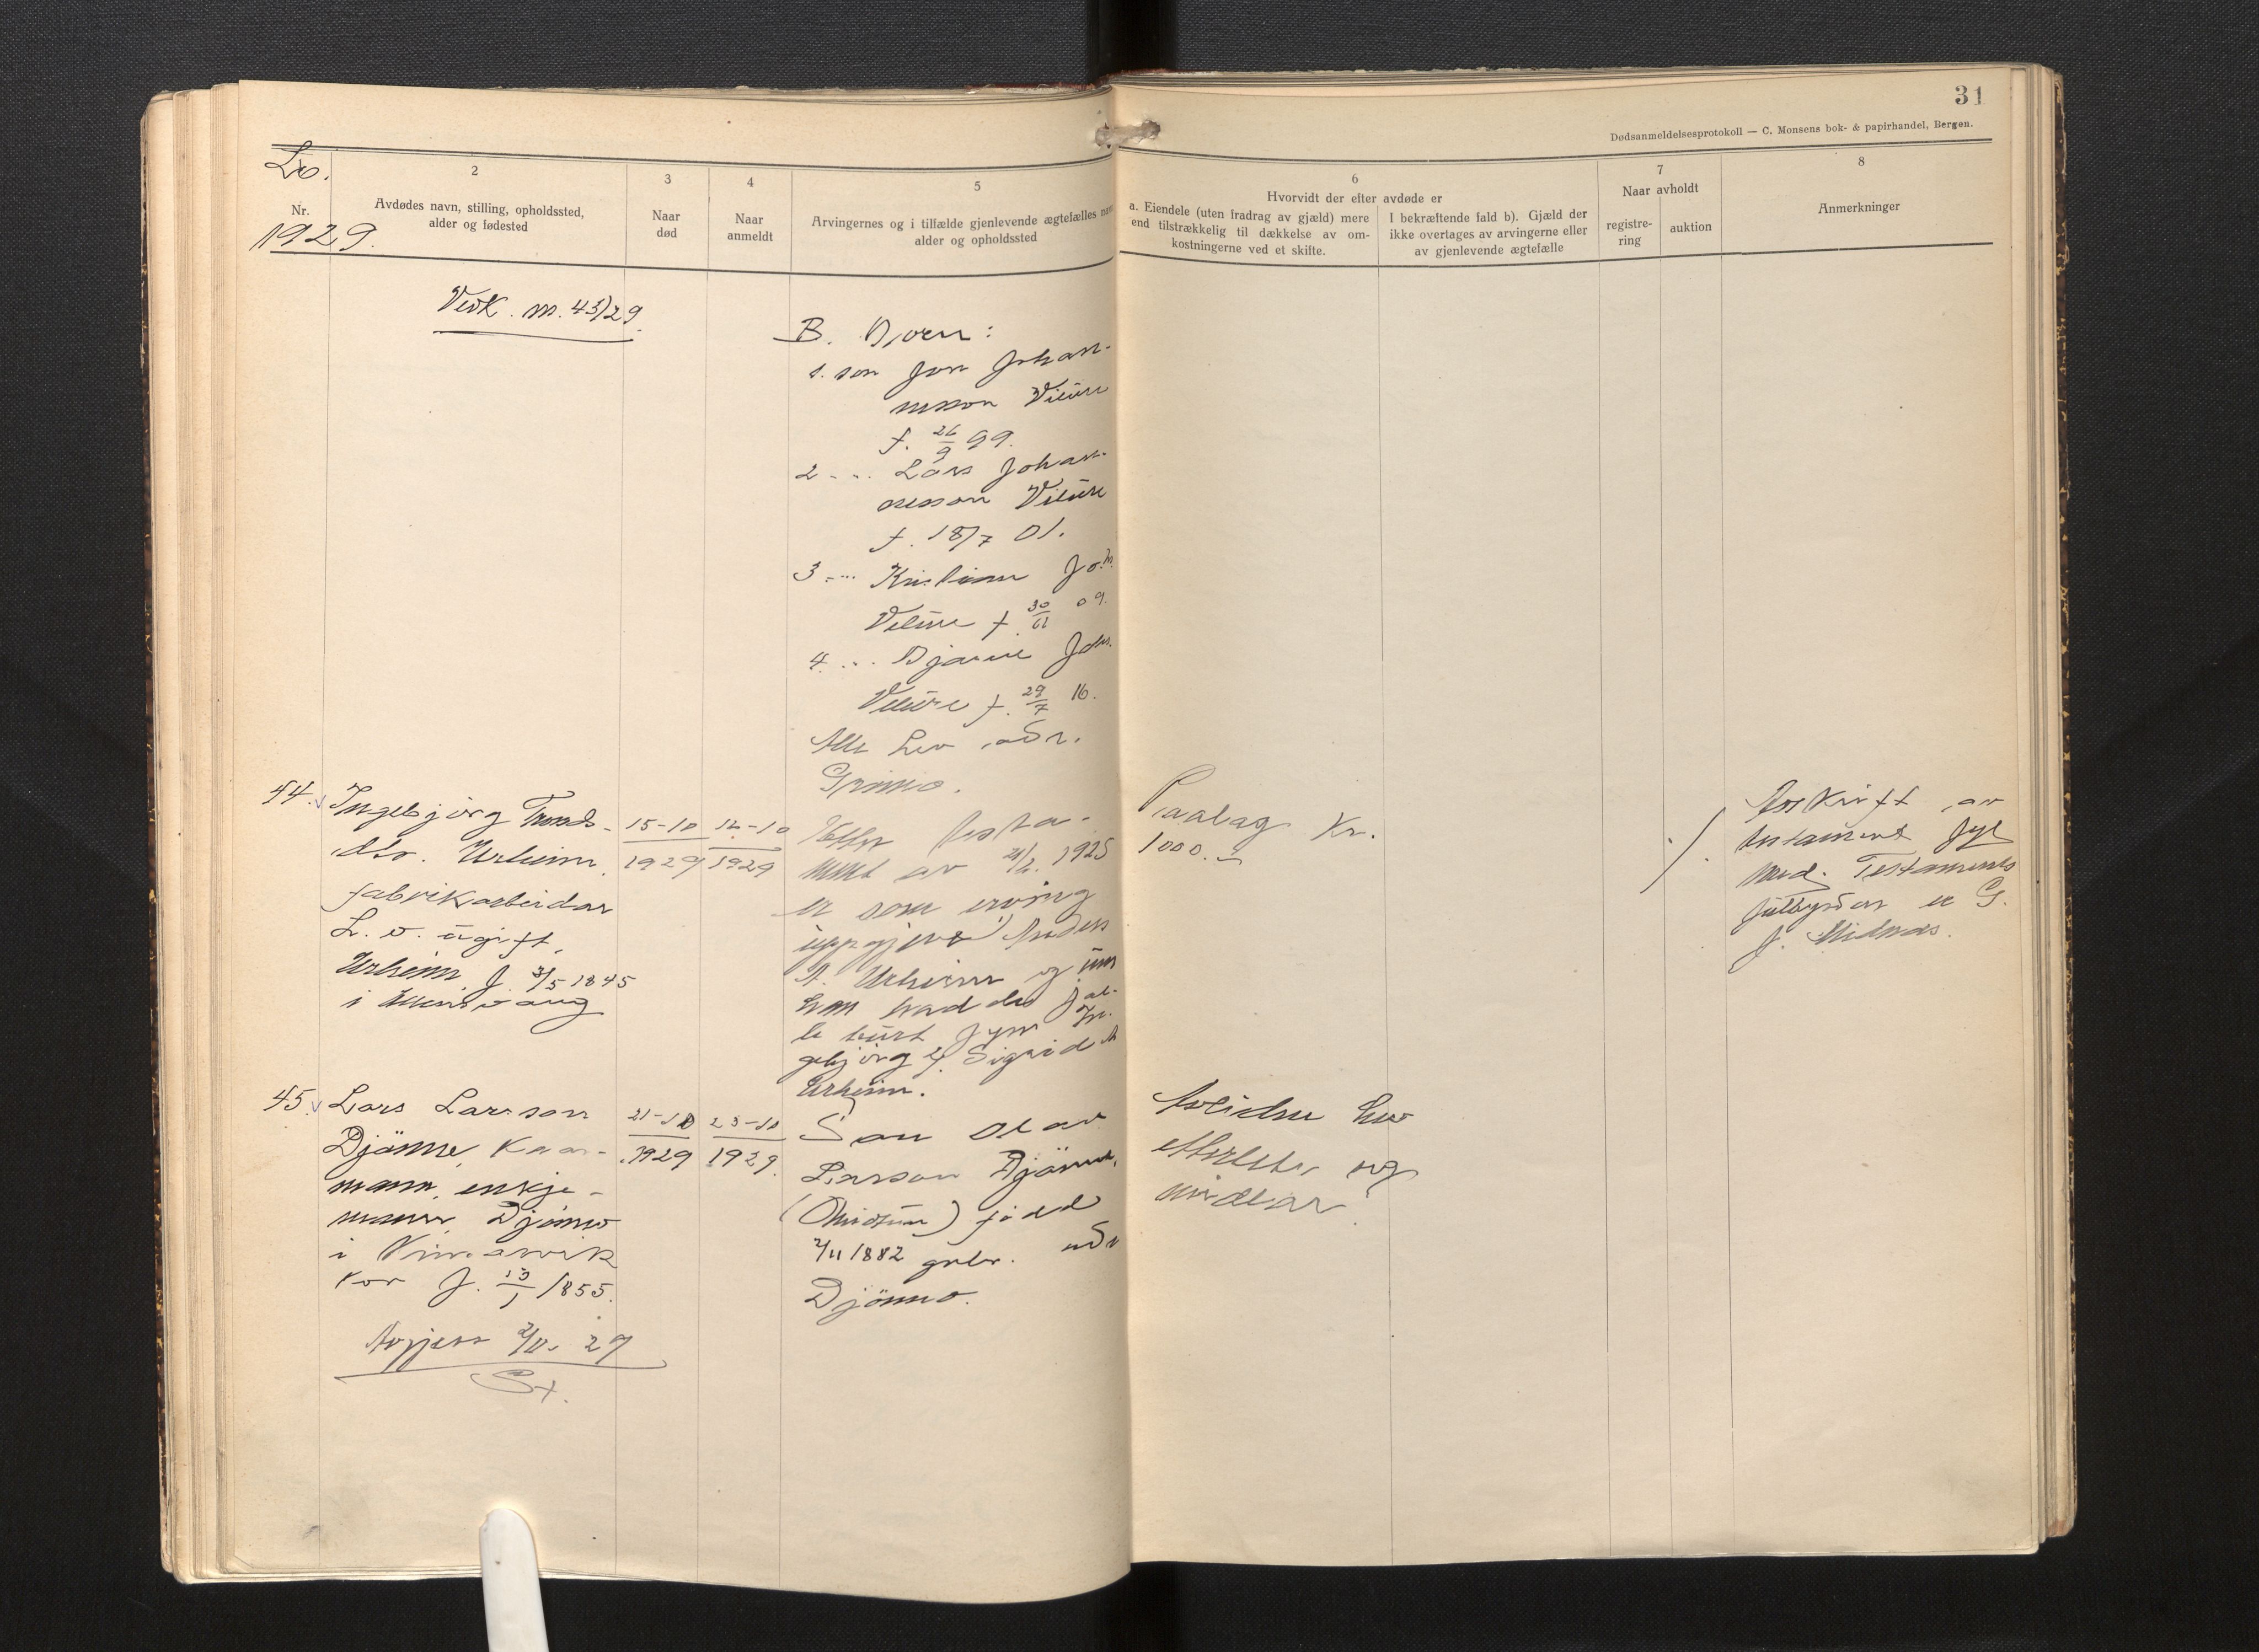 31
Dødsanmeldelsesprotokoll — C. Monsens bok- & papirhandel, Bergen.
Nr.
1929.
2
Avdødes navn, stilling, opholdssted,
alder og fødested
3
Naar
død
4
Naar
anmeldt
5
Arvingernes og i tilfælde gjenlevende ægtefælles
alder og opholdssted
6
Hvorvidt der efter avdøde er
a. Eiendele (uten fradrag av gjæld) mere
end tilstrækkelig til dækkelse av om-
kostningerne ved et skifte.
I bekræftende fald b). Gjæld der
ikke overtages av arvingerne eller
av gjenlevende ægtefælle
7
Naar avholdt
registre-
ring
auktion
8
Anmerkninger
m. 43/29.
B. Born:
1. son Jon Johan-
nesson Vikøre
f. 26/9 99.
2 - .. Lars Johan-
nesson Vikøre
f. 18/7 01.
3 - .. Kristian Joh.
Vikøre f. 30/ 09.
4 ... Bjarne Joh.
Vikøre f. 29/7 16.
Alle adr.
Grimo.
44. Ingebjørg Tronds-
dtr. Urheim
fabrikarbeidar
ugift,
Urheim f. 3/5 - 1845
i Ullensvang
15-10
1929
1929
Etter testa-
ment av 1925
er som erving
uppgjeve
Urheim og um
han hadde fal-
le burt fyrr In-
gebjørg Sigrid
Urheim.
Paalag Kr.
1000.-
Avskrift av
testament fyl
med. Testaments
fullbyrdar er G.
J. Midnes.
45. Lars Larsson
Djønne, Kaar-
mann, enkje-
mann, Djønno
i Kinsarvik
f. 13/1 1855.
21-10
1929
23-10
1929.
Son Olav
Larsson Djønne,
(Midtun) fødd
2/11 1882 gbr. adr
Djønno.
Avlidne hev
etterlete seg
midlar.
29
St.